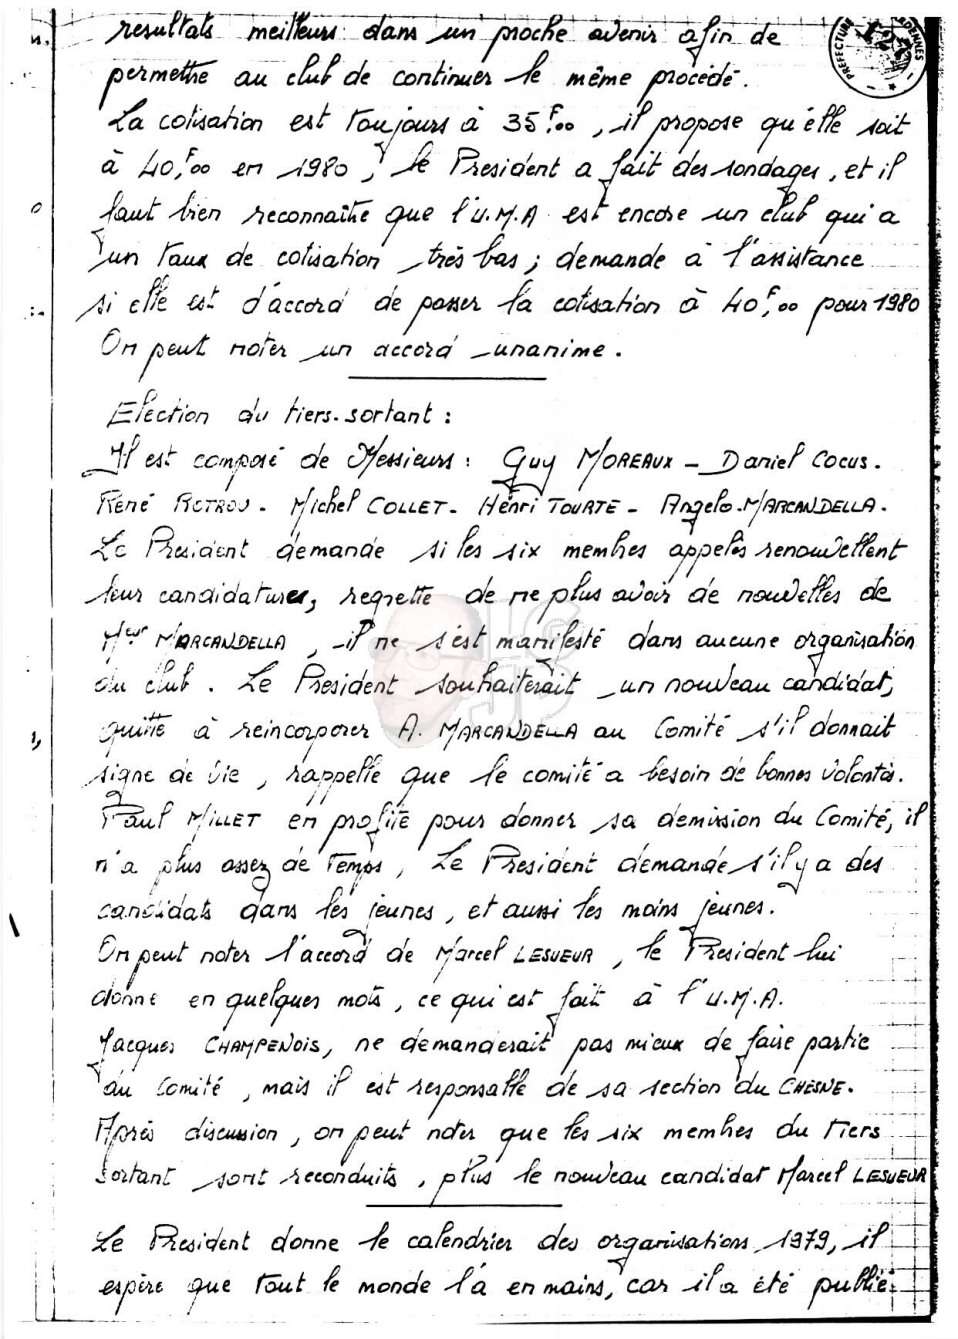 résultats meilleurs dans un proche avenir afin de
PREFECTURE ARDENNES
permettre au club de continuer le même procédé.
La cotisation est toujours à 35F,00, il propose qu'elle soit
à 40F,00 en 1980, le President a fait des sondages, et il
faut bien reconnaître que l'U.M.A est encore un club qui a
un taux de cotisation très bas; demande à l'assistance
si elle est d'accord de passer la cotisation à 40F,00 pour 1980
On peut noter un accord unanime.
Election du tiers-sortant :
Il est composé de Messieurs : Guy MOREAUX - Daniel COCUS.
René ROTROU - Michel COLLET - Henri TOURTE - Angelo-MARCANDELLA.
Le President demande si les six membres appelés renouvellent
leur candidatures, regrette de ne plus avoir de nouvelles de
Meur MARCANDELLA, il ne s'est manifesté dans aucune organisation
du club. Le President souhaiterait un nouveau candidat,
quitte à reincorporer A. MARCANDELLA au Comité s'il donnait
signe de vie, rappelle que le comité a besoin de bonnes volontés.
Paul MILLET en profite pour donner sa demission du Comité, il
n'a plus assez de temps, Le President demande s'il y a des
candidats dans les jeunes, et aussi les moins jeunes.
On peut noter l'accord de Marcel LESUEUR, le President lui
donne en quelques mots, ce qui est fait à l'U.M.A.
Jacques CHAMPENOIS, ne demanderait pas mieux de faire partie
du Comité, mais il est responsable de sa section du CHESNE.
Après discussion, on peut noter que les six membres du tiers
sortant sont reconduits, plus le nouveau candidat Marcel LESUEUR
Le President donne le calendrier des organisations 1979, il
espère que tout le monde l'a en mains, car il a été publié